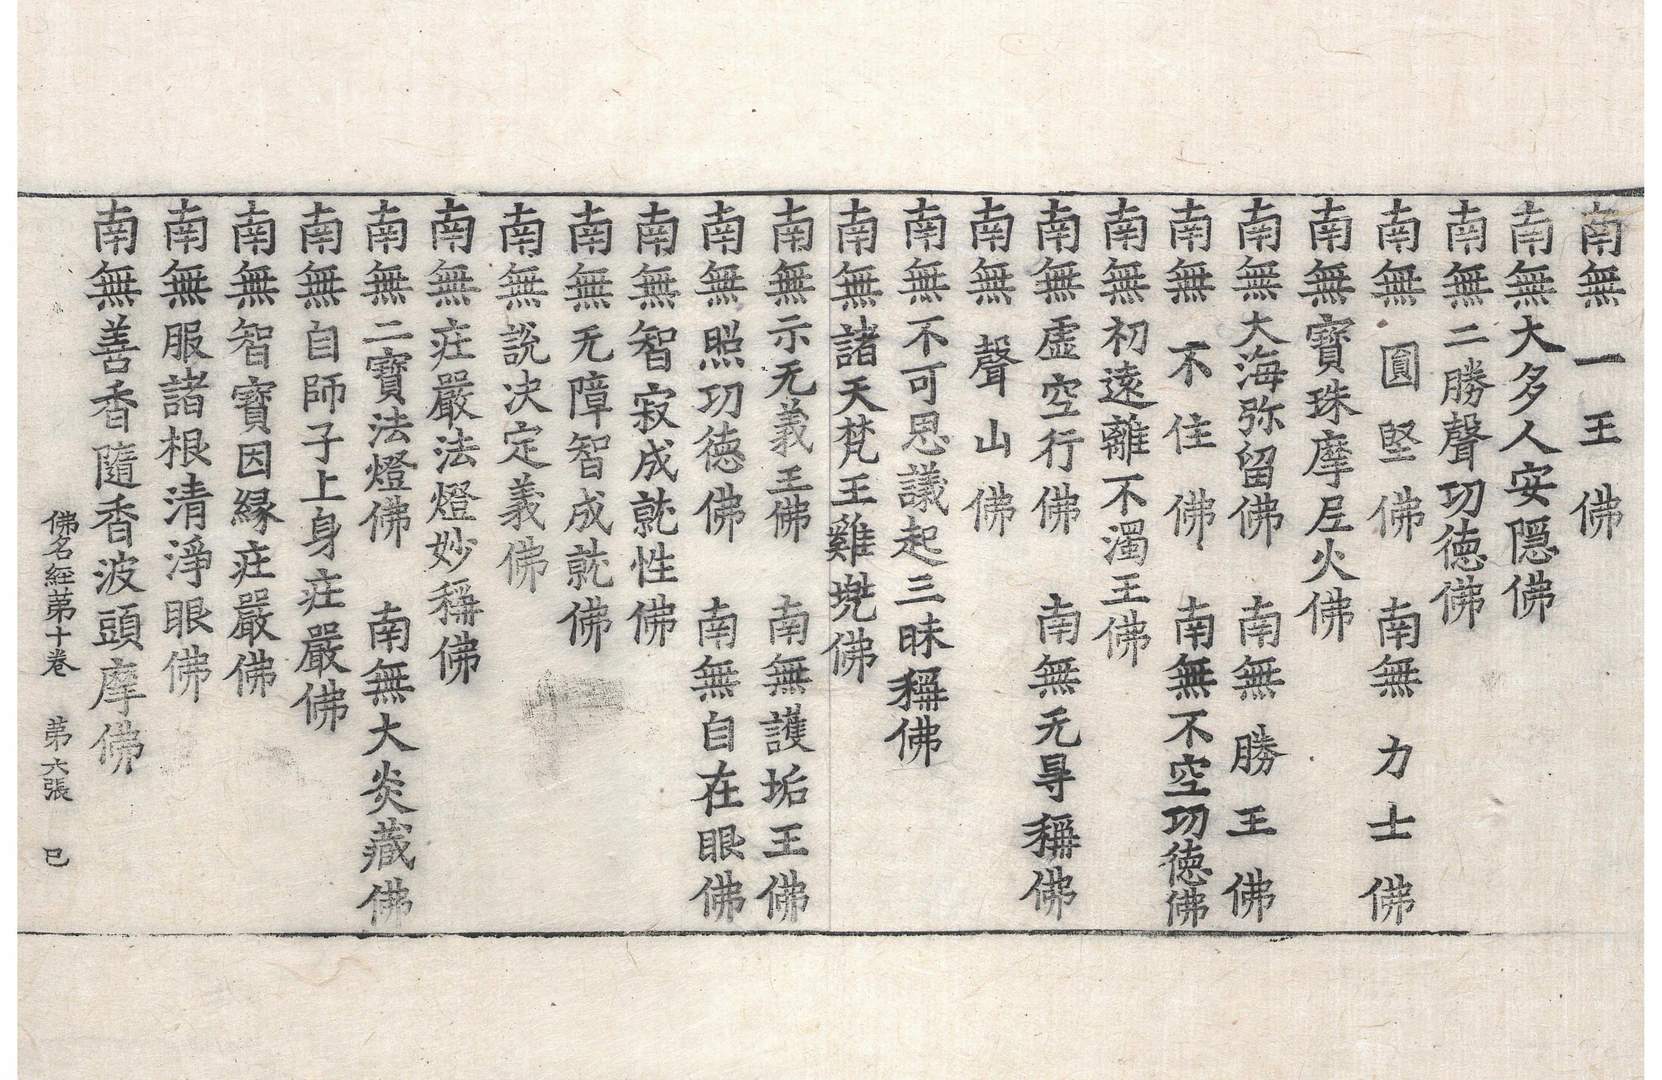 南無一王佛
南無大多人安隱佛
南無二勝聲功德佛
南無圓堅佛　南無力士佛
南無寶珠摩尼火佛
南無大海弥留佛　南無勝王佛
南無不住佛　南無不空功德佛
南無初遠離不濁王佛
南無虛空行佛　南無无㝵稱佛
南無聲山佛
南無不可思議起三昧稱佛
南無諸天梵王雞兠佛
南無示无義王佛　南無護垢王佛
南無照功德佛　南無自在眼佛
南無智寂成就性佛
南無无障智成就佛
南無說决定義佛
南無㽵嚴法燈妙稱佛
南無二寶法燈佛　南無大炎藏佛
南無自師子上身㽵嚴佛
南無智寶因緣㽵嚴佛
南無服諸根清淨眼佛
南無善香隨香波頭摩佛
佛名經苐十卷　苐六張　巳